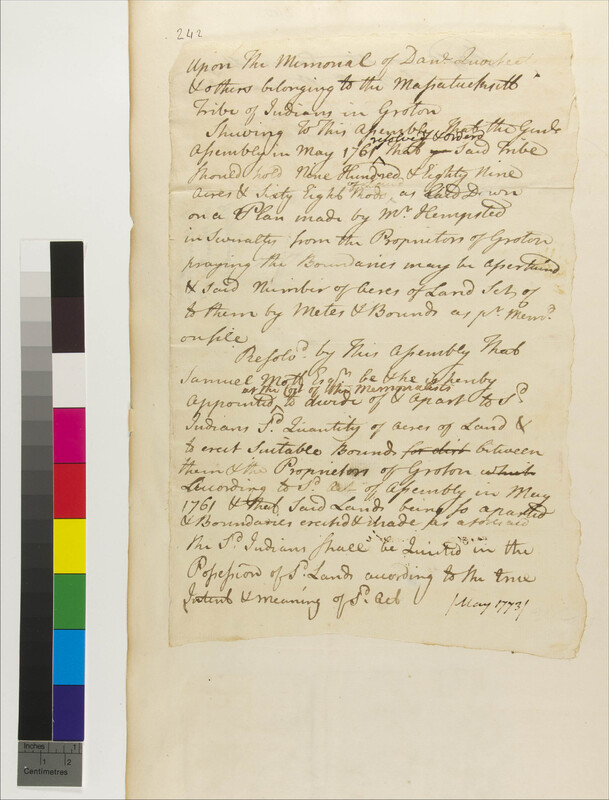 242
Upon The Memorial of Danl. Quocheets
& others belonging to the Massatuchsitt
Tribe of Indians in Groton
Shewing To This Assembly That the Genl.
resolved & orderd
Assembly in May 1761 ^ That Said Tribe
Should hold Nine Hundred & Eighty Nine
Acres & Sixty Eight Rhods as Laid Down
on a Plan made by Mr. Hempsted
in Severalty from the Proprietors of Groton
praying the Boundaries may be assertaind
& Said Number of Acres of Land Set of
to them by Metes & Bounds as pr. Memo.
on file
Resolvd. by This Assembly That
Samuel Mott Esqr. be & he is hereby
at the Cost of the Memorialists
Appointed ^ to devide of & apart to Sd.
Indians Sd. Quantity of acres of Land &
to erect Suitable Bounds for dist between
them & the Proprietors of Groton
According to Sd. Act of Assembly in May
1761 & that Said Lands being So aparted
& Boundaries erected & made as aforesaid
The Sd. Indians shall be Quieted in the
Possession of Sd. Lands according to the true
Intent & meaning of Sd. Act
/May 1773/
Inches 1
1 2
Centimetres